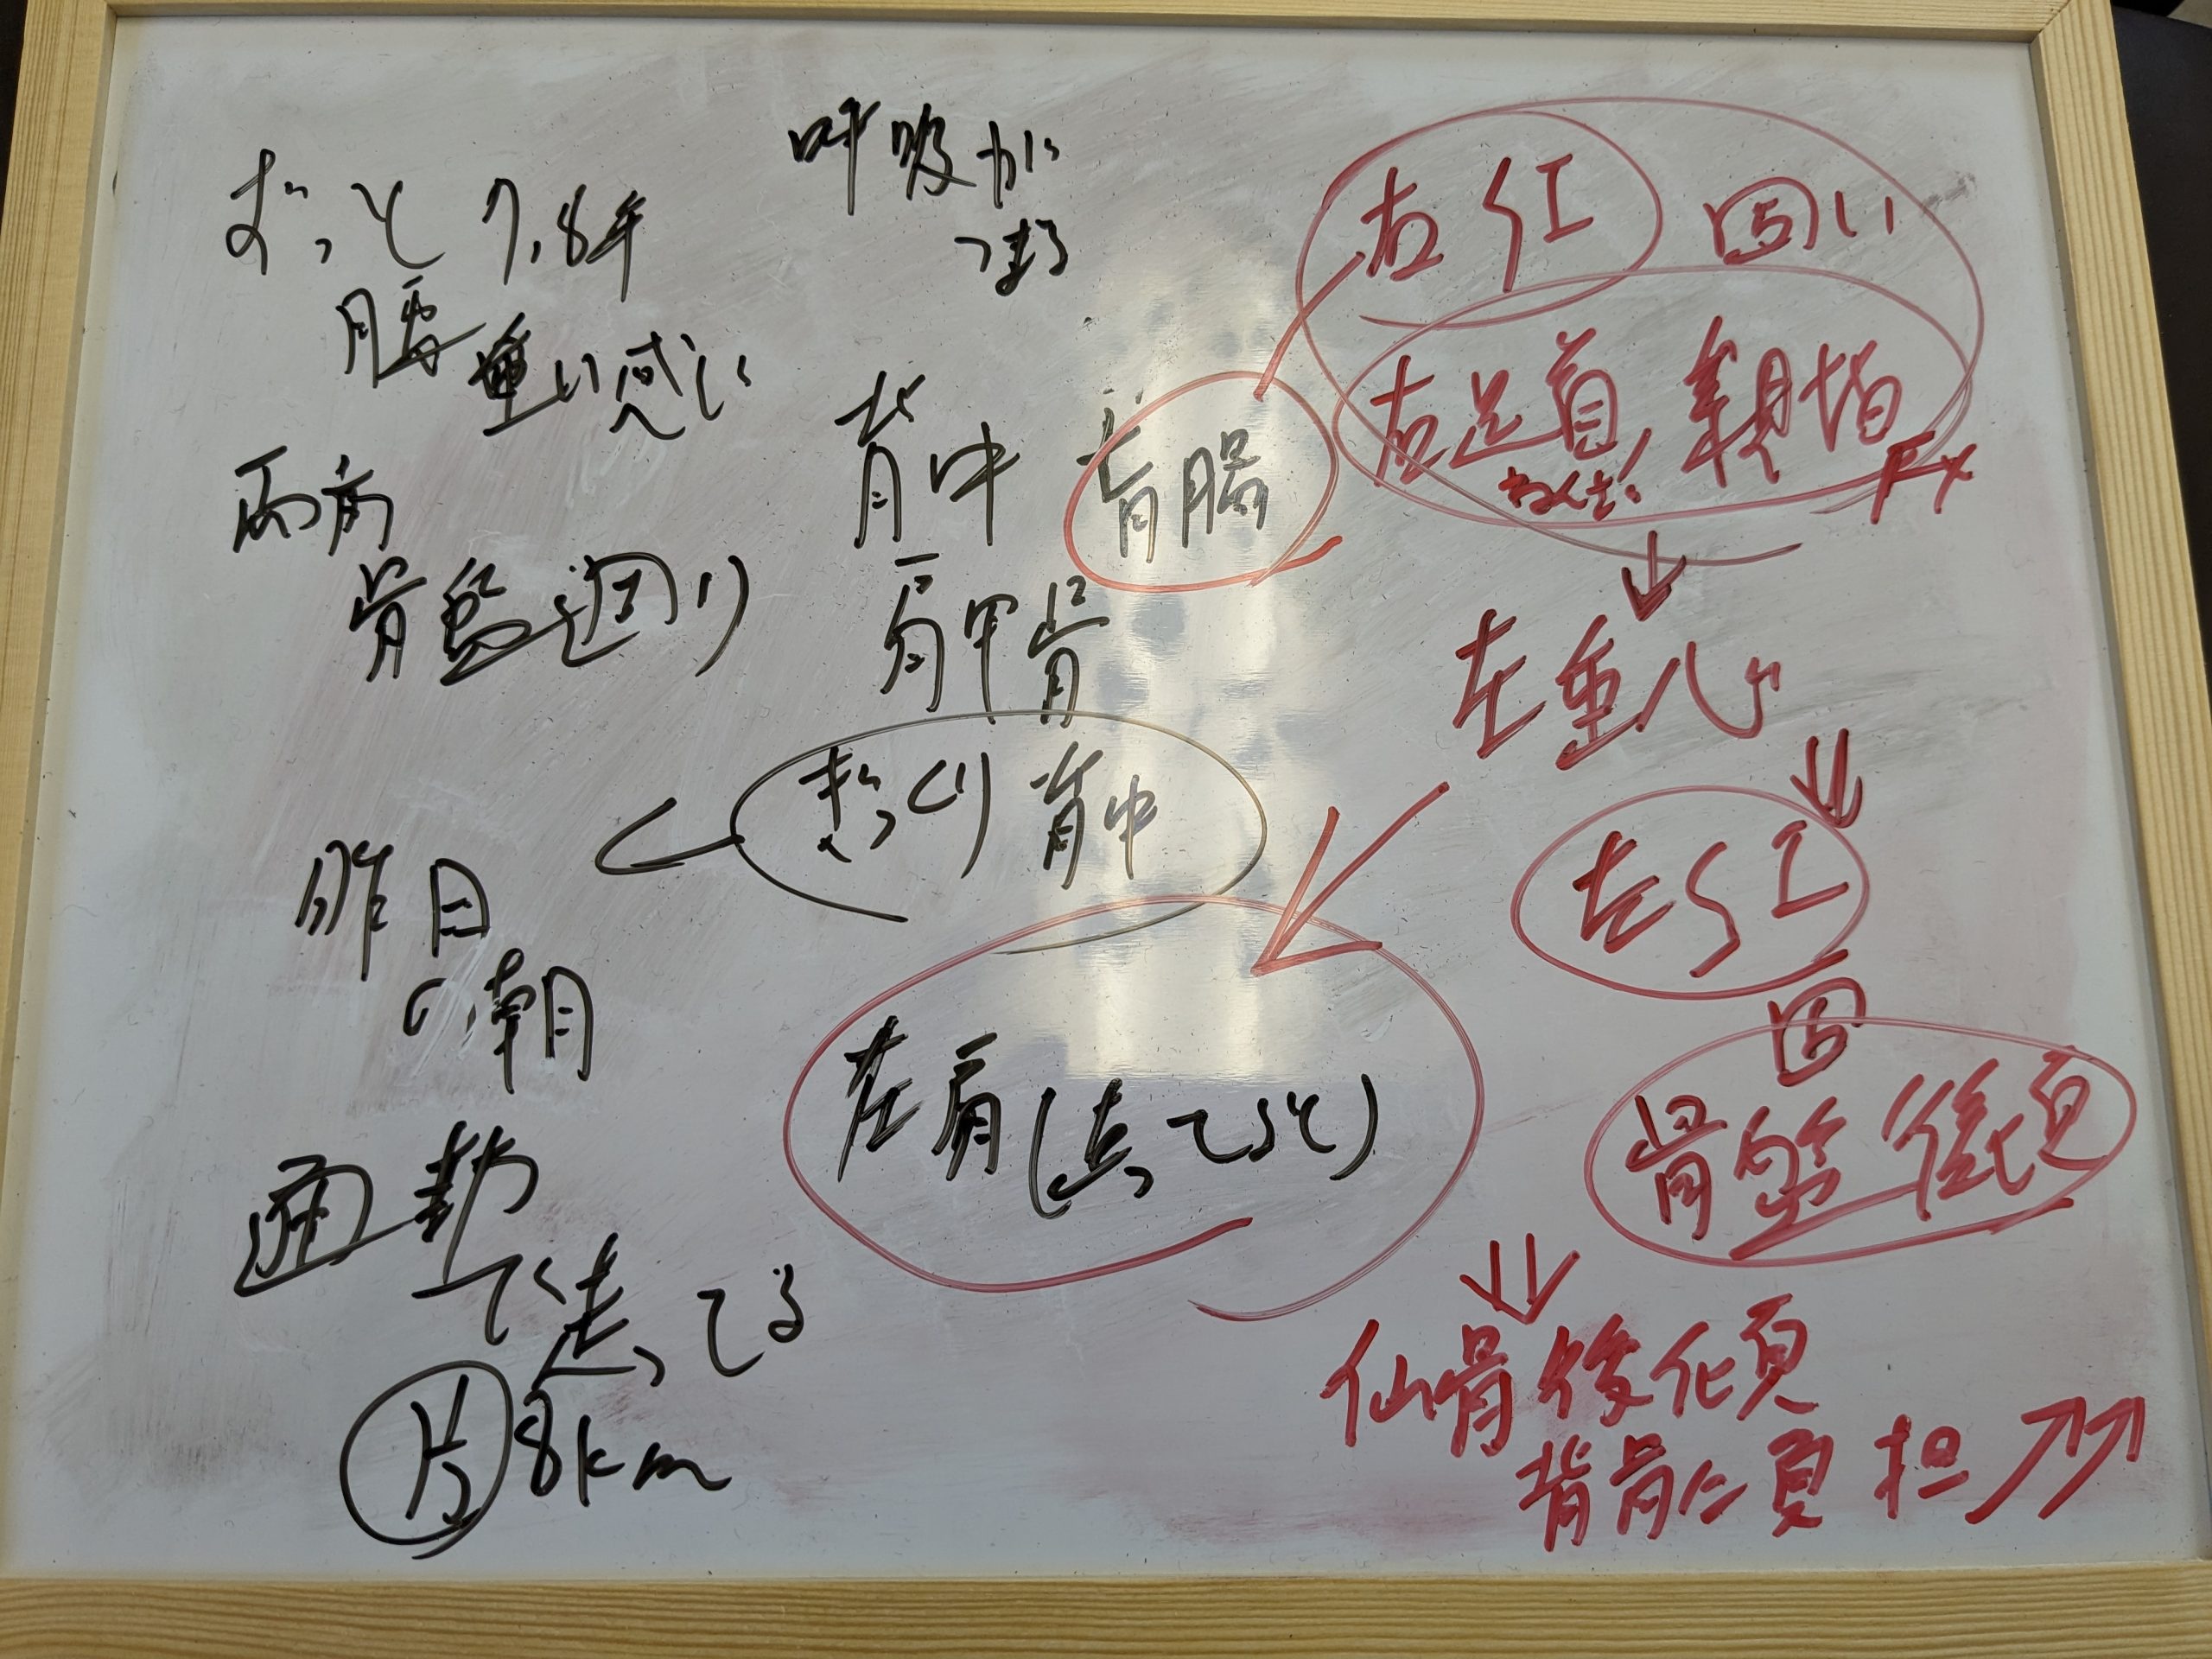 ずっと 7,8年
腰 重い感じ
両方
骨盤 週り
昨日
の朝
通勤
で走ってる
片 8km
呼吸が
つまる
背中 盲腸
肩甲骨
ぎっくり 背中
左肩(走ってると)
右 SI 固い
右足首 親指
ねんざ! Fx
左重心
左SI
固
骨盤後傾
仙骨後傾
背骨に負担